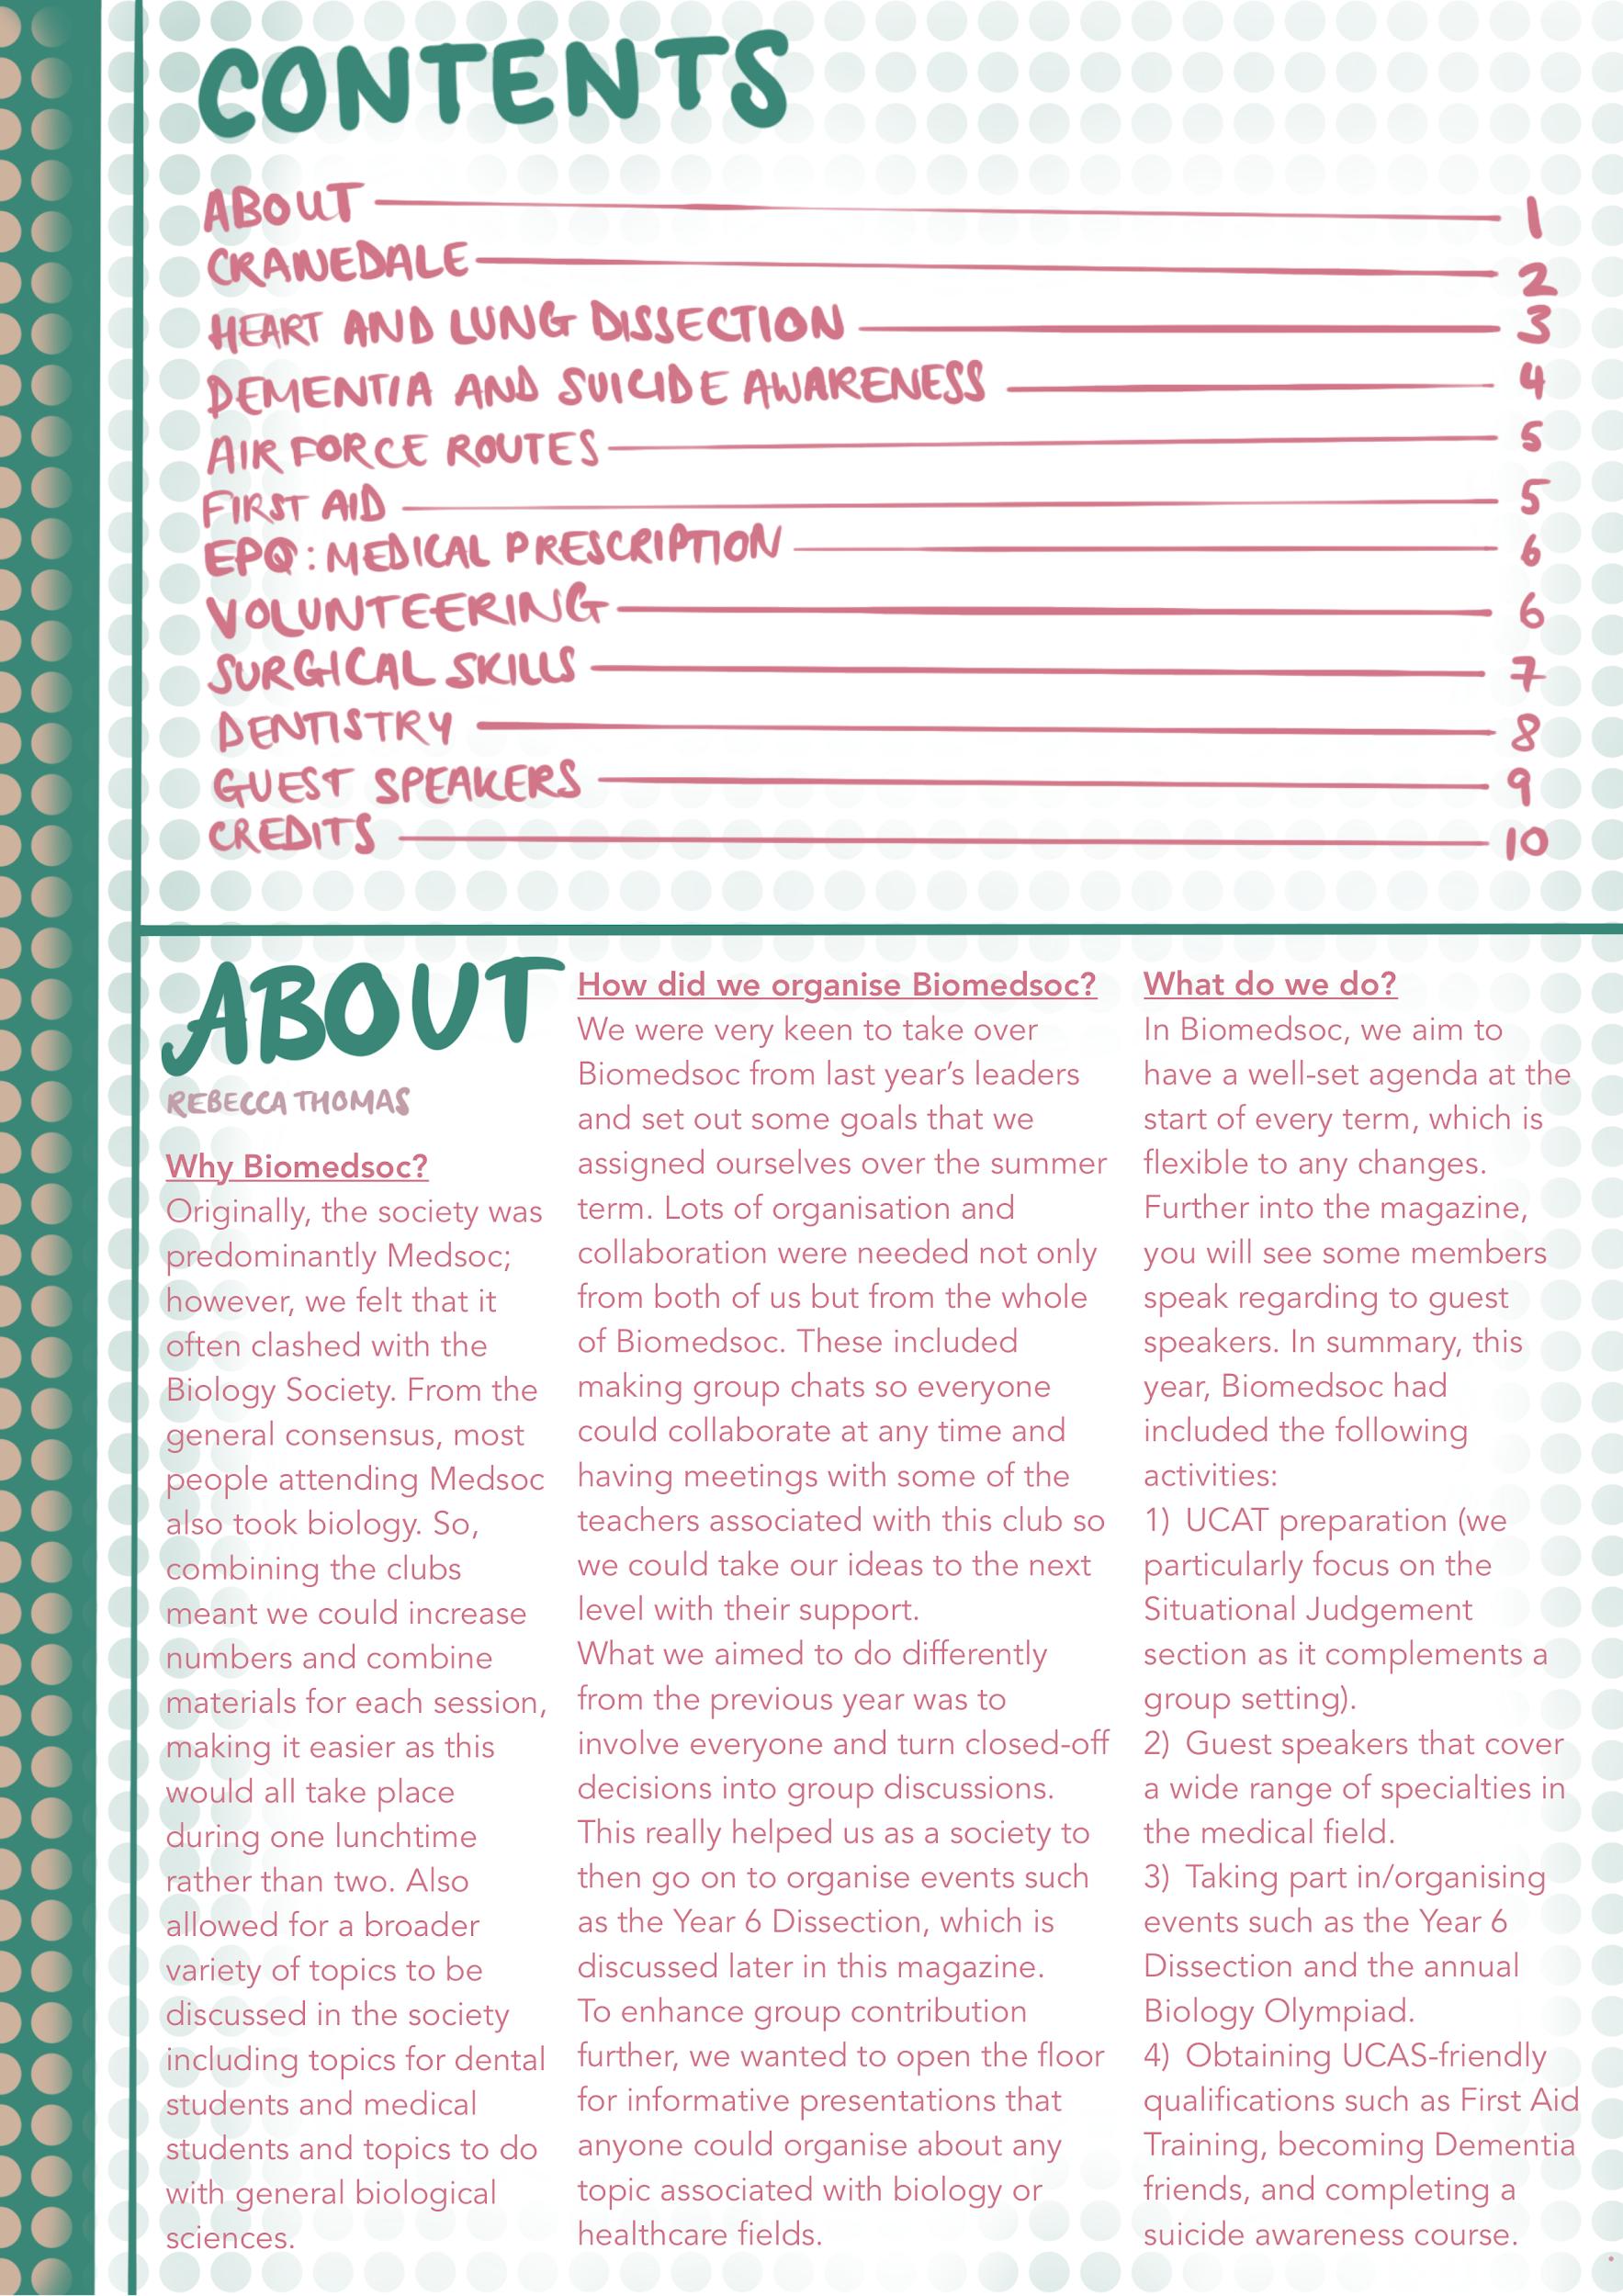 CONTENTS
ABOUT 1
CRANEDALE 2
HEART AND LUNG DISSECTION 3
DEMENTIA AND SUICIDE AWARENESS 4
AIR FORCE ROUTES 5
FIRST AID 5
EPQ: MEDICAL PRESCRIPTION 6
VOLUNTEERING 6
SURGICAL SKILLS 7
DENTISTRY 8
GUEST SPEAKERS 9
CREDITS 10
ABOUT
REBECCA THOMAS
Why Biomedsoc?
Originally, the society was
predominantly Medsoc;
however, we felt that it
often clashed with the
Biology Society. From the
general consensus, most
people attending Medsoc
also took biology. So,
combining the clubs
meant we could increase
numbers and combine
materials for each session,
making it easier as this
would all take place
during one lunchtime
rather than two. Also
allowed for a broader
variety of topics to be
discussed in the society
including topics for dental
students and medical
students and topics to do
with general biological
sciences.
How did we organise Biomedsoc?
We were very keen to take over
Biomedsoc from last year's leaders
and set out some goals that we
assigned ourselves over the summer
term. Lots of organisation and
collaboration were needed not only
from both of us but from the whole
of Biomedsoc. These included
making group chats so everyone
could collaborate at any time and
having meetings with some of the
teachers associated with this club so
we could take our ideas to the next
level with their support.
What we aimed to do differently
from the previous year was to
involve everyone and turn closed-off
decisions into group discussions.
This really helped us as a society to
then go on to organise events such
as the Year 6 Dissection, which is
discussed later in this magazine.
To enhance group contribution
further, we wanted to open the floor
for informative presentations that
anyone could organise about any
topic associated with biology or
healthcare fields.
What do we do?
In Biomedsoc, we aim to
have a well-set agenda at the
start of every term, which is
flexible to any changes.
Further into the magazine,
you will see some members
speak regarding to guest
speakers. In summary, this
year, Biomedsoc had
included the following
activities:
1) UCAT preparation (we
particularly focus on the
Situational Judgement
section as it complements a
group setting).
2) Guest speakers that cover
a wide range of specialties in
the medical field.
3) Taking part in/organising
events such as the Year 6
Dissection and the annual
Biology Olympiad.
4) Obtaining UCAS-friendly
qualifications such as First Aid
Training, becoming Dementia
friends, and completing a
suicide awareness course.